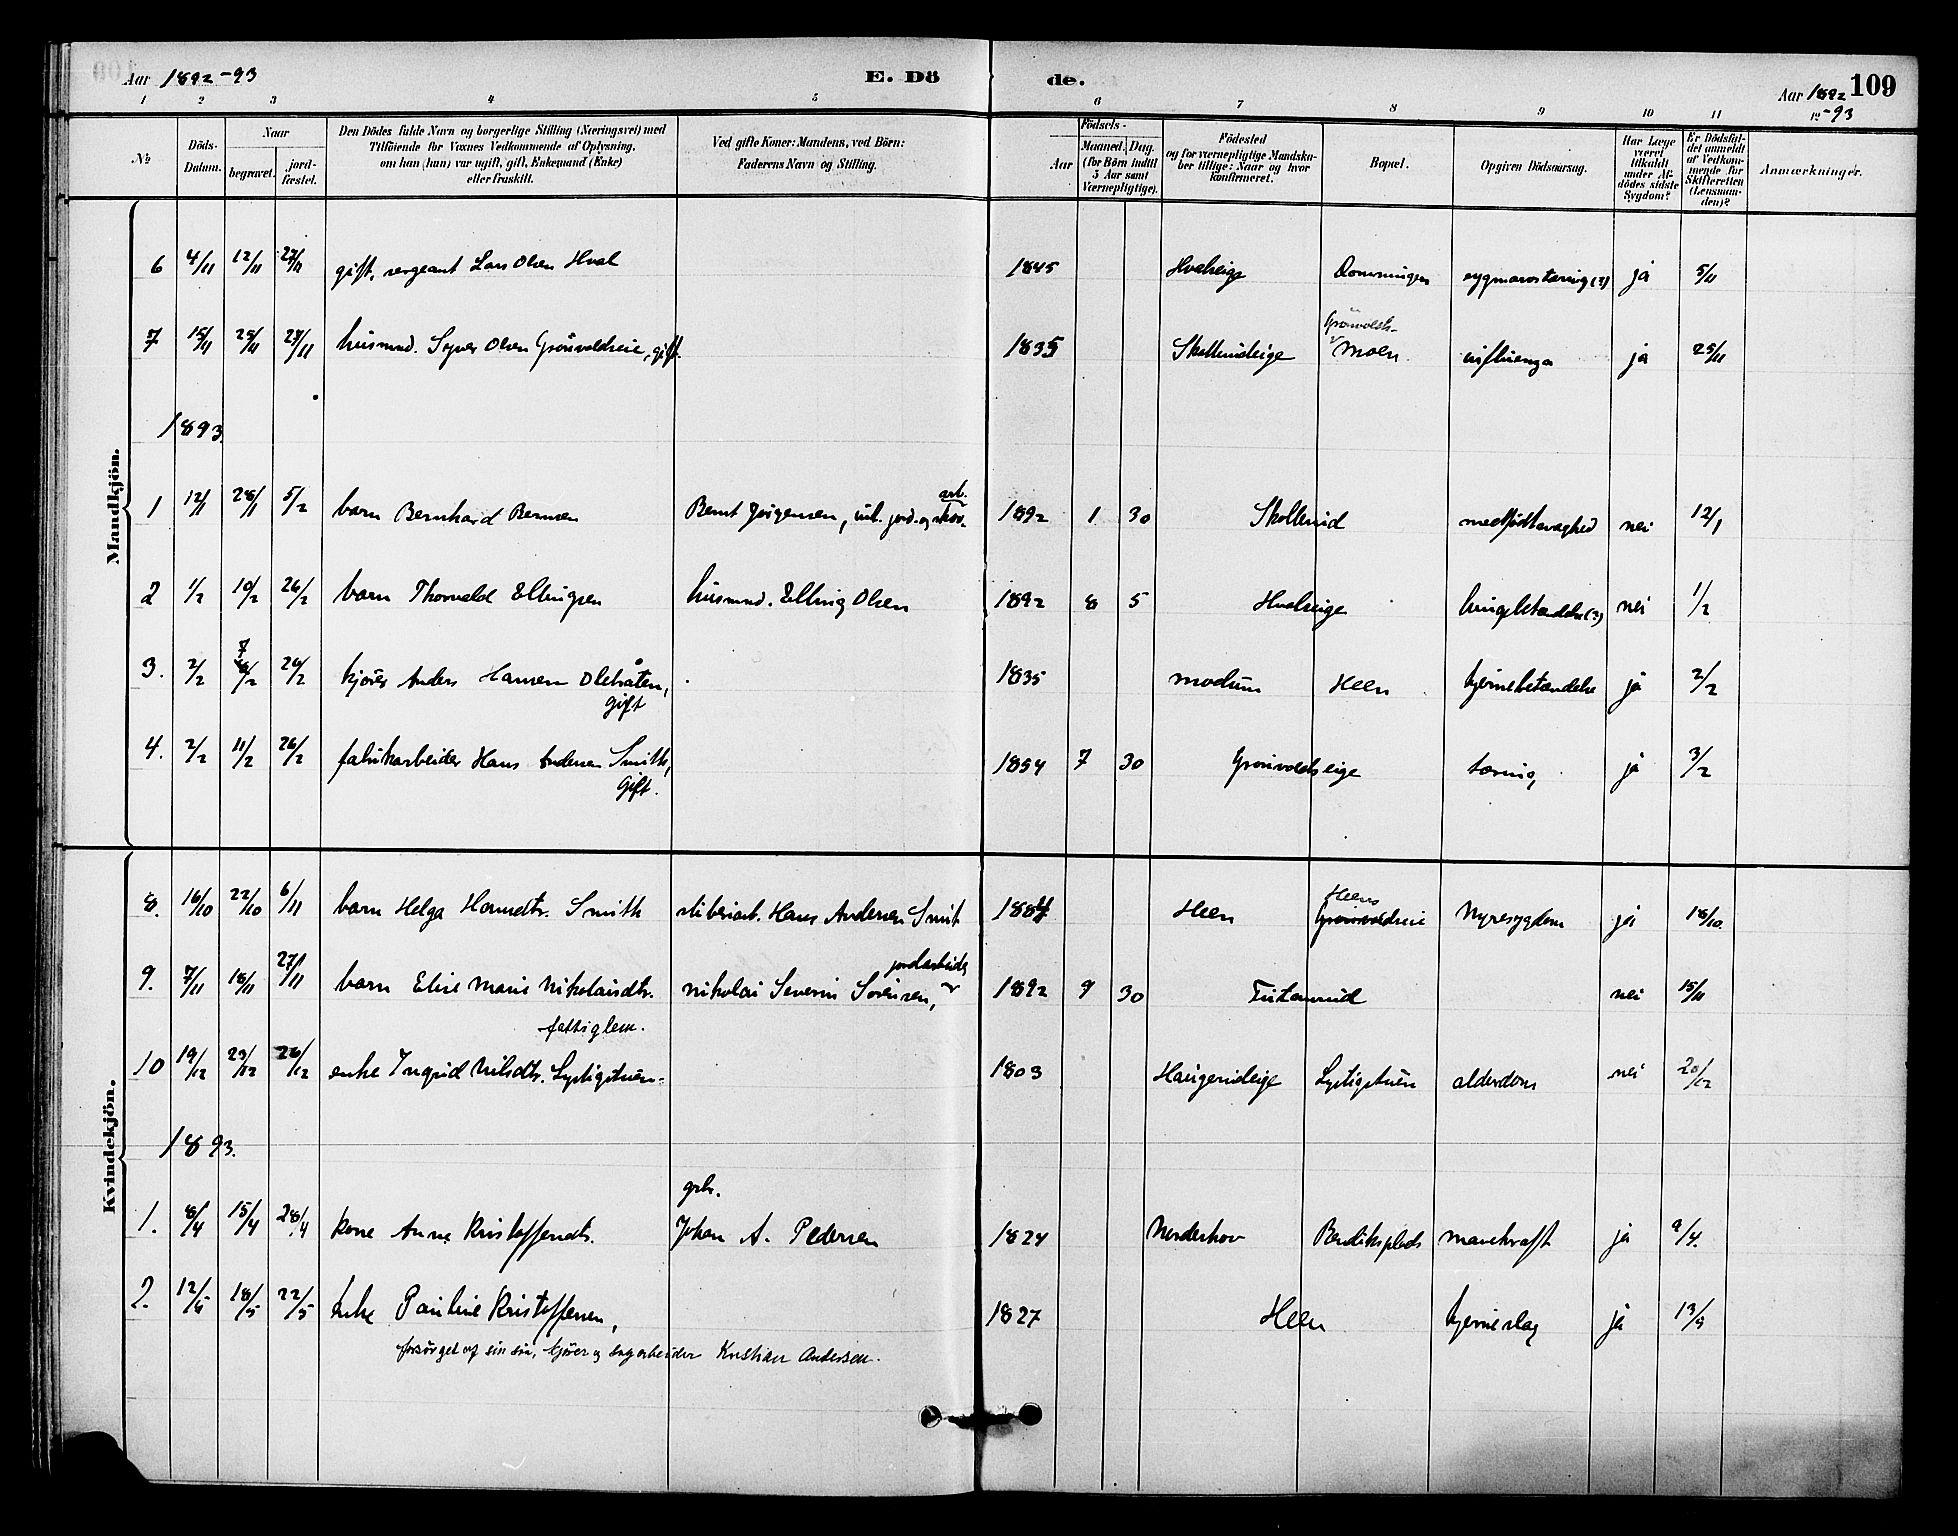 Aar 1892-93 E. Dö de. Aar 1892-93 109
1 2 3 4 5 6 7 8 9 10 11 12
№
Döds-Datum.
Naar
begravet.
jord-fæstet.
Den Dödes fulde Navn og borgerlige Stilling (Næringsvei) med
Tilföiende for Voxnes Vedkommende af Oplysning,
om han (hun) var ugift, gift, Enkemand (Enke)
eller fraskilt.
Ved gifte Koner: Mandens, ved Börn:
Faderens Navn og Stilling.
Födsels-
Aar Maaned. Dag.
(for Börn indtil
5 Aar samt
Værnepligtige).
Födested
og for værnepligtige Mandska-
ber tillige: Naar og hvor
konfirmeret.
Bopæl.
Opgiven Dödsaarsag.
Har Læge
været
tilkaldt
under Af-
dödes sidste
Sygdom?
Er Dödsfal-
det anmeldt
af Vedkom-
mende for
Skifteretten
(Lensman-
den)?
Anmærkninger.
Mandkjön.
6 4/11 12/11 27/11 gift, sergeant Lars Olsen Hval 1845 Hvalseige ja 5/11
7 15/11 25/11 27/11 husmnd. Syver Olsen Grönvoldseie, gift. 1835 Skollerudeige Grönvolds-
Moen. influenza ja 25/11
1893
1 12/1 28/1 5/2 barn Bernhard Bernsen Bernt Jörgensen, inl. jord- og skov. arb. 1892 1 30 Skollerud medfödt svaghed nei 12/1
2 1/2 10/2 26/2 barn Thorvald Ellingsen husmnd. Elling Olsen 1892 8 5 Hvalseige lungebetændelse (?) nei 1/2
3. 2/2 7/2 26/2 kjörer Anders Hansen Olebråten,
gift 1835 modum Heen hjernebetændelse ja 2/2
4. 2/2 11/2 26/2 fabrikarbeider Hans Andersen Smith,
gift. 1854 7 30 Grönvoldseige tæring, ja 3/2
Kvindekjön.
8. 16/10 22/10 6/11 barn Helga Hansdtr. Smith sliberiarb. Hans Andersen Smit 1884 Heen Heens
Grönvoldseie Nyresygdom ja 18/10.
9. 7/11 18/11 27/11 barn Elise Marie Nikolaisdtr. nikolai Severin Sörensen, jordarbeider 1892 9 30 nei 15/11
fattiglem.
10 19/12 23/12 26/12 enke Ingrid Nilsdtr. Lystigstuen. 1803 Haugerudeige Lystigstuen alderdom nei 20/12
1893.
1. 8/4 15/4 28/4 kone Anne Kristoffersdtr. grbr.
Johan A. Pedersen 1824 Norderhov Bendiksplads mavekræft ja 9/4.
2. 12/5 18/5 22/5 Enke Pauline Kristoffersen, 1827 Heen hjerneslag ja 13/5
forsörget af sin sön, kjörer og sagarbeider Kristian Andersen.